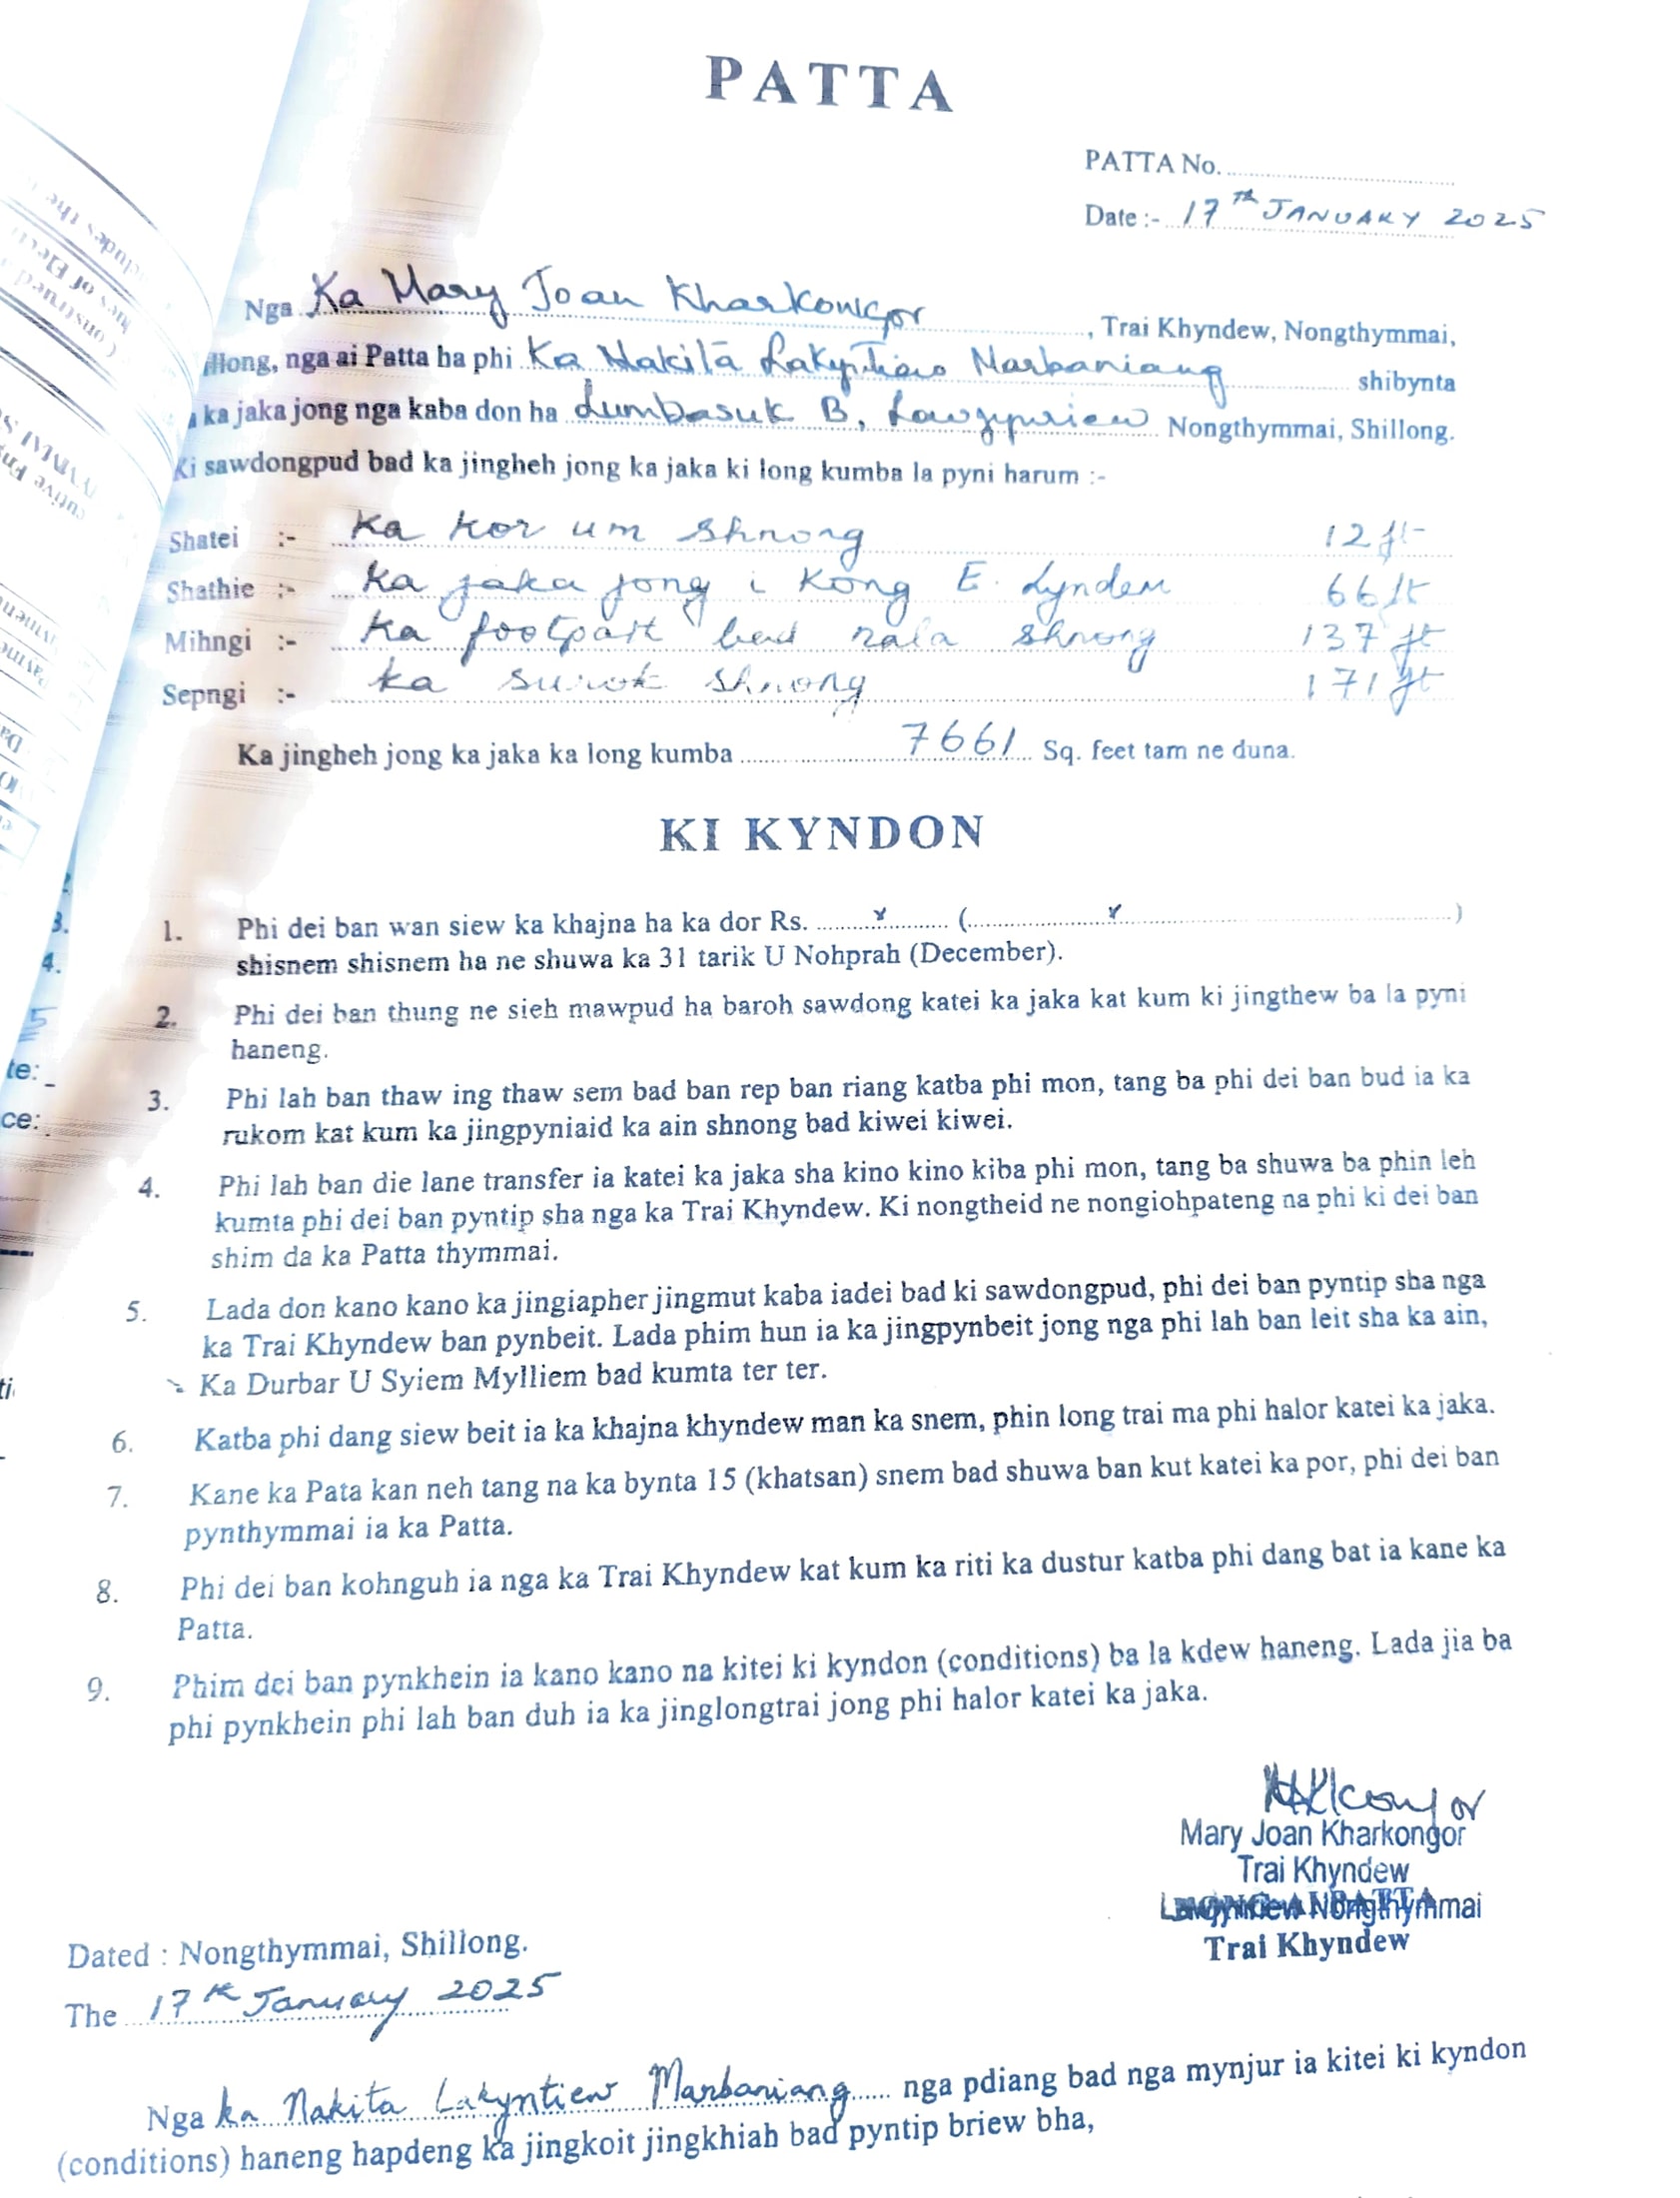 PATTA
PATTA No.
Date :- 17th JANUARY 2025
Nga Ka Mary Joan Kharkongor, Trai Khyndew, Nongthymmai,
illong, nga ai Patta ha phi Ka Nakita Lakyntiew Marbaniang shibynta
ka jaka jong nga kaba don ha Lumbasuk B, Lawjynriew Nongthymmai, Shillong.
Ki sawdongpud bad ka jingheh jong ka jaka ki long kumba la pyni harum :-
Shatei :- Ka kor um shnong 12 ft
Shathie :- Ka jaka jong i Kong E. Lyndem 66 ft
Mihngi :- Ka footpart bad nala shnong 137 ft
Sepngi :- ka surok shnong 171 ft
Ka jingheh jong ka jaka ka long kumba 7661 Sq. feet tam ne duna.
KI KYNDON
1. Phi dei ban wan siew ka khajna ha ka dor Rs. x ( x )
shisnem shisnem ha ne shuwa ka 31 tarik U Nohprah (December).
2. Phi dei ban thung ne sieh mawpud ha baroh sawdong katei ka jaka kat kum ki jingthew ba la pyni
haneng.
3. Phi lah ban thaw ing thaw sem bad ban rep ban riang katba phi mon, tang ba phi dei ban bud ia ka
rukom kat kum ka jingpyniaid ka ain shnong bad kiwei kiwei.
4. Phi lah ban die lane transfer ia katei ka jaka sha kino kino kiba phi mon, tang ba shuwa ba phin leh
kumta phi dei ban pyntip sha nga ka Trai Khyndew. Ki nongtheid ne nongiohpateng na phi ki dei ban
shim da ka Patta thymmai.
5. Lada don kano kano ka jingiapher jingmut kaba iadei bad ki sawdongpud, phi dei ban pyntip sha nga
ka Trai Khyndew ban pynbeit. Lada phim hun ia ka jingpynbeit jong nga phi lah ban leit sha ka ain,
Ka Durbar U Syiem Mylliem bad kumta ter ter.
6. Katba phi dang siew beit ia ka khajna khyndew man ka snem, phin long trai ma phi halor katei ka jaka.
7. Kane ka Pata kan neh tang na ka bynta 15 (khatsan) snem bad shuwa ban kut katei ka por, phi dei ban
pynthymmai ia ka Patta.
8. Phi dei ban kohnguh ia nga ka Trai Khyndew kat kum ka riti ka dustur katba phi dang bat ia kane ka
Patta.
9. Phim dei ban pynkhein ia kano kano na kitei ki kyndon (conditions) ba la kdew haneng. Lada jia ba
phi pynkhein phi lah ban duh ia ka jinglongtrai jong phi halor katei ka jaka.
Mary Joan Kharkongor
Trai Khyndew
Nongthymmai
Trai Khyndew
Dated : Nongthymmai, Shillong.
The 17th January 2025
Nga ka Nakita Lakyntiew Marbaniang nga pdiang bad nga mynjur ia kitei ki kyndon
(conditions) haneng hapdeng ka jingkoit jingkhiah bad pyntip briew bha,